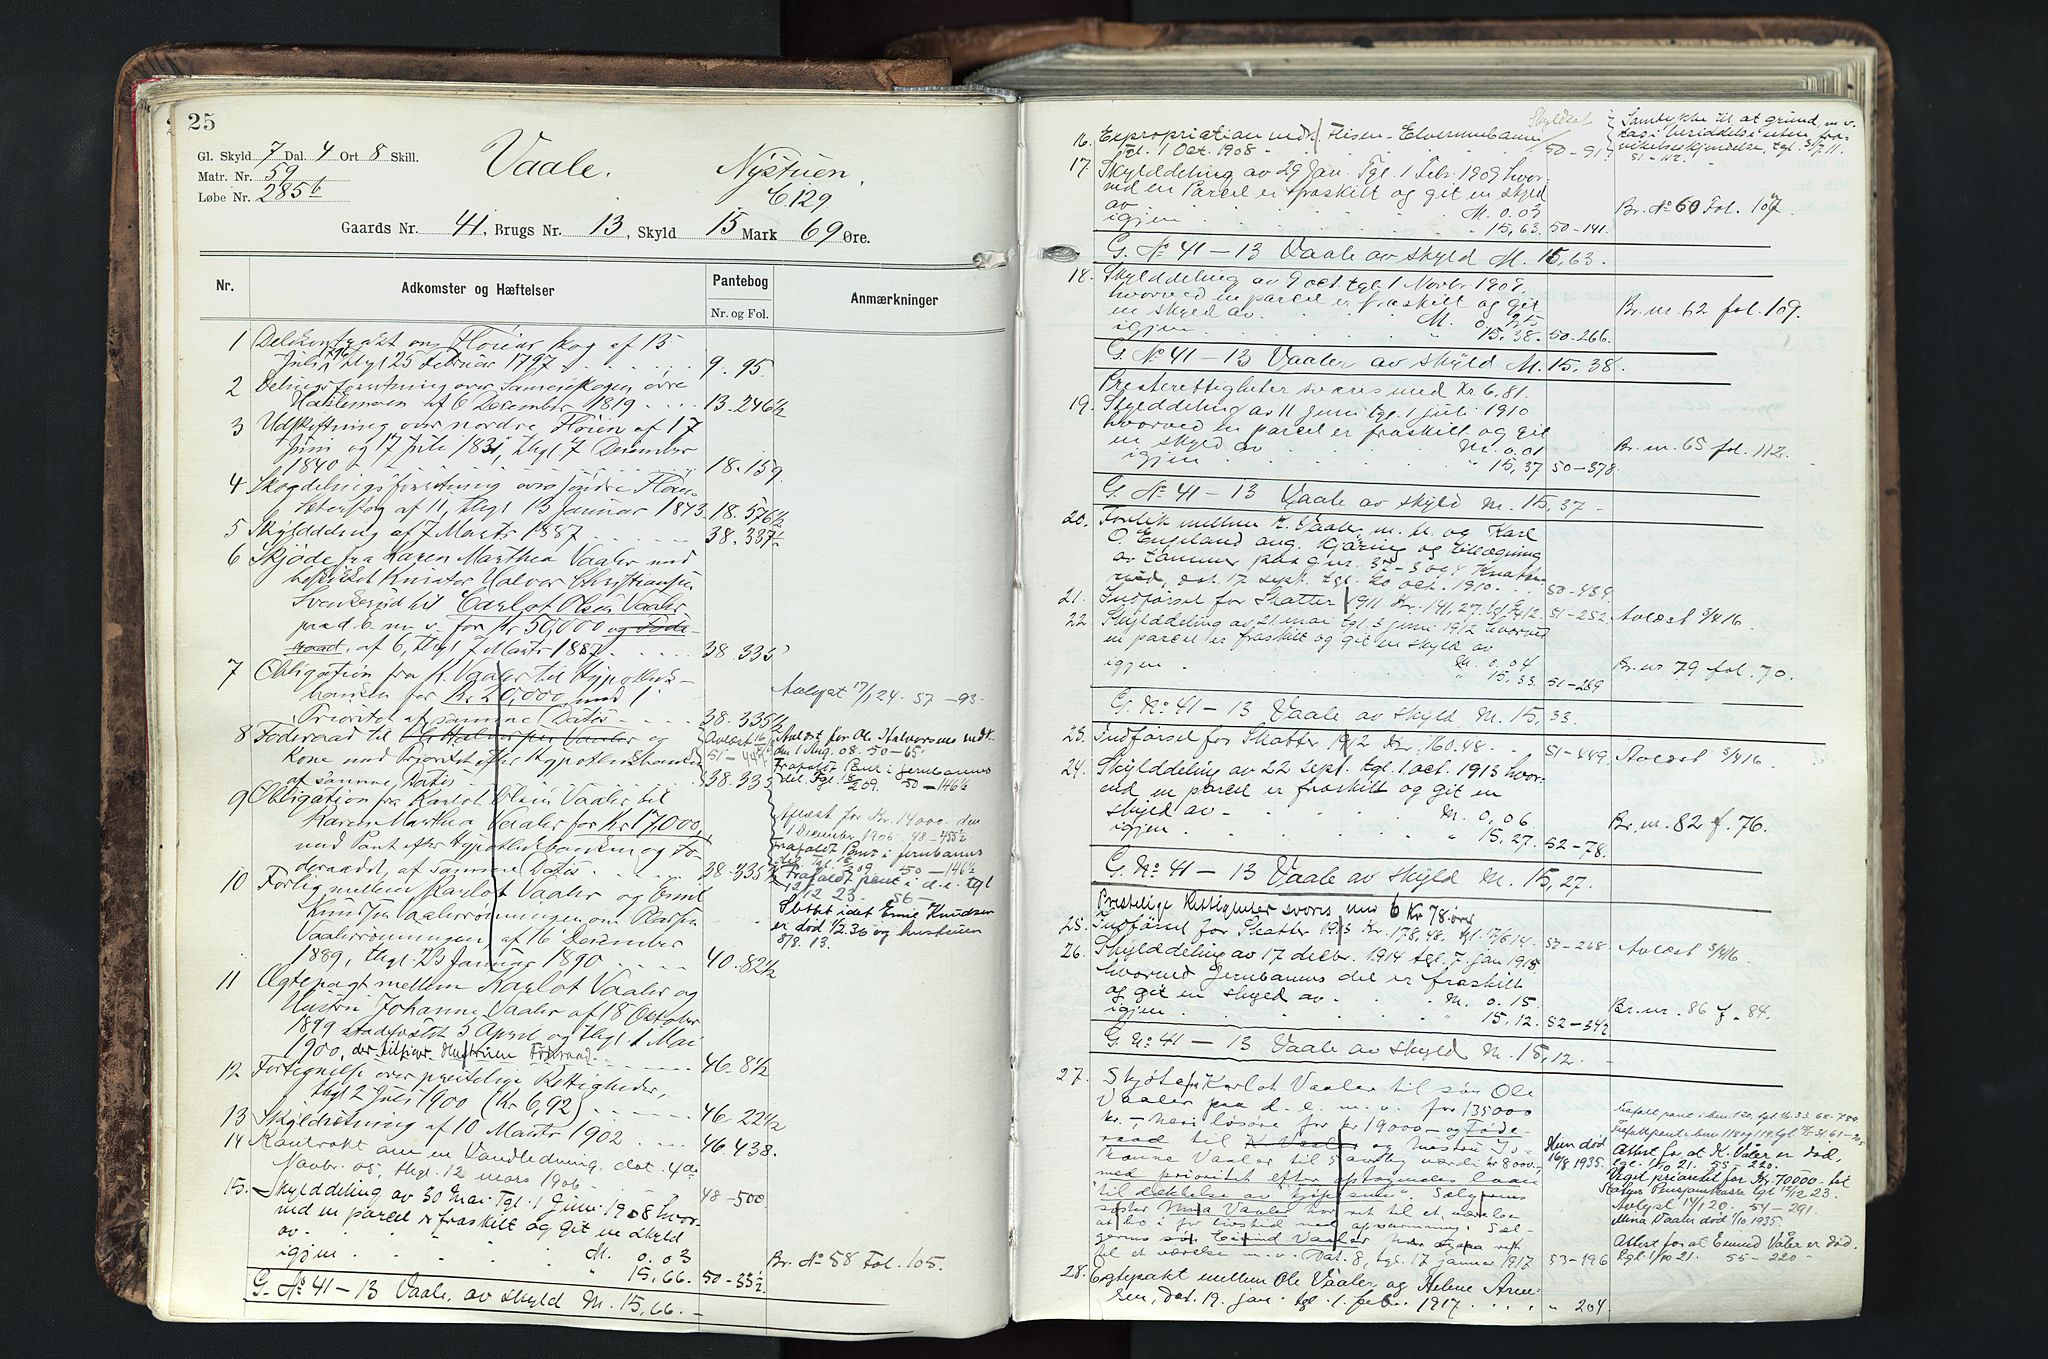 25
Gl. Skyld 7 Dal. 4 Ort 8 Skill.
Matr. Nr. 59
Løbe Nr. 285b
Vaale. Nystuen.
C. 129
Gaards Nr. 41, Brugs Nr. 13, Skyld 15 Mark 69 Øre.
Nr. Adkomster og Hæftelser Pantebog Anmærkninger
Nr. og Fol.
1 om Fløiar skog af 15
Juli thgl 25 Februar 1797 9. 95.
2 Delingsforretning over øvre
Haslemoen af 6 December 1819 13. 246½
3 Udskiftning over nordre Fløien af 17
Juni og 17 Juli 183, thgl 7 December
1840 18. 159.
4 Skogdelingsforretning over søndre Fløien
af 11, thgl 13 Januar 1843. 18. 576½
5 Skylddeling af 7 Marts 1887 38. 337½
6 Skjøde fra Karen Marthea Vaaler med
beskikket Kurator Halvor Christiansen
Svenkerud til Carlot Olsen Vaaler
paa d. e. m. v. for Kr 50,000 og Føde-
raad, af 6, thgl 7 Marts 1887. 38. 335
7 Obligation fra K. Vaaler til Hypothek-
banken for Kr. 20,000 med 1
Prioritet af samme Dato 38. 335½
Avlyst 17/1 24. 57 - 93.
8 Føderaad til Vaaler og
Kone med Prioritet efter Hypothekbanken
af samme Dato 38. 335
Avlæst for Ole Halvorsens vedk.
den 1 Aug. 08. 50-65
Frafaldt Pant i Jernbanens
del. Tgl. 50 - 146½
9 Obligation fra Karlot Olsen Vaaler til
Karen Marthea Vaaler for Kr 17,000,
med Pant efter Hypothekbanken og Fø-
deraadet, af samme Dato 38. 335½
Aflæst for Kr. 14000 den
1 December 1905 48 - 455½
Frafaldt Pant i Jernbanens
del. Tgl. 50 - 146½
Frafaldt pant i d. e. tgl
12/12 23. 56 -
10 Forlig mellem Karlot Vaaler og Emil
Knudsen Vaalerrønningen om Pladsen
Vaalerrønningen af 16 December
1889, thgl. 23 Januar 1890 40. 82½
Slettet idet Emil Knudsen
er død 1/2.36 og hustruen
8/8. 13.
11 Ægtepagt mellem Karlot Vaaler og
Hustru Johanne Vaaler af 18 Oktober
1899 stadfæstet 5 April og thgl 1 Mai
1900, der tilsikr. Hustruen Føderaad. 46. 8½
12 Fortegnelse over geistlige Rettigheder,
thgl 2 Juli 1900 (Kr 6,92) 46. 22½
13 Skyldretning af 10 Marts 1902 46. 438.
14 Kontrakt om en Vandledning dat. 4de
Novbr. 05, thgl. 12 mars 1906 48 - 500
15. Skylddeling av 30 Mai. Tgl. 1 Juni 1908 hvor-
ved en parcel er fraskilt og git en skyld
av M. 0.03
igjen " 15,66. 50 - 33½
Br. No 58 Fol. 105.
G. No 41 - 13 Vaale, av skyld M. 15,66.
16. Expropriation vedk. Flisen - Elverumbanen
Tgl. 1 Oct. 1908 50-91
Samtykke til at grund m. v.
51-112.
17. Skylddeling av 29 Jan. Tgl. 1 Febr. 1909 hvor-
ved en Parcel er fraskilt og git en skyld
av M. 0.03
igjen " 15,63. 50-141.
Br. No 60 Fol. 107.
G. No 41 - 13 Vaale av skyld M. 15,63.
18. Skylddeling av 9 oct. tgl. 1 Novbr. 1909.
hvorved en parcel er fraskilt og git
en skyld av. M. 0,25
igjen " 15,38. 50-266.
Br. nr. 62 fol. 109.
G. No 41 - 13 Vaaler av skyld M. 15,38.
Presterettigheter svares med Kr 6.81.
19. Skylddeling av 11 Juni tgl. 1 juli 1910
hvorved en parcel er fraskilt og git
en skyld av M. 0.01
igjen " 15,37 50-378.
Br. nr. 65 fol. 112.
G. No 41 - 13 Vaale av skyld M. 15,37.
20. Forlik mellem K. Vaaler m. fl. og Karl
O. Engeland ang. kjøring og tillægning
av tømmer paa g. nr. 37 - 3 og 4
dat. 17 sept. tgl. 20 oct. 1910. 50-439.
21. Indførsel for Skatter 1911 Kr. 141,27. 51-252. Avlæst 3/4 16.
22. Skylddeling av 21 mai tgl. 3 juni 1912 hvorved
en parcel er fraskilt og git en skyld av
M. 0,04
igjen " 15.33. 51-289
Br. nr 79 fol. 70.
G. Nr. 41 - 13 Vaale av skyld M. 15,33.
23. Indførsel for Skatter 1912 Kr. 160.48. 51-449. Avlæst 3/4 16.
24. Skylddeling av 22 sept. tgl. 1 oct. 1913 hvor-
ved en parcel er fraskilt og git en
skyld av M. 0,06
igjen " 15,27. 52-78.
Br. nr. 82 f. 76.
G. No 41 - 13 Vaale av skyld M. 15,27.
Prestelige Rettigheter svares med 6 Kr 78 øre
25. Indførsel for Skatter 1913 Kr. 178,48. tgl. 7/6 14. 52-268 Avlæst 3/4 16.
26. Skylddeling av 17 decbr. 1914 tgl. 7 jan 1915
hvorved Jernbanens del er fraskilt
og git en skyld av M. 0.15.
igjen " 15,12. 52-342
Br. nr. 86 f. 84.
G. No 41 - 13 Vaale av skyld M. 15,12.
27. Skjøte fr Karlot Vaaler til søn Ole
Vaaler paa d. e. m. v. for 135000
kr. - heri løsøre for kr 19000 - og Føde-
raad til K. Vaaler og hustru Jo-
hanne Vaaler til 5 aarlig værdi kr 8000,
med prioritet efter optagendes laan
til dækkelse av kjøpesum. Sælgerens
søster Mina Vaaler har ret til et værelse
at bo i for livstid med opvarmning. Sæl-
gerens søn Eivind Vaaler har ogsaa rett
til et værelse m. v. Dat. 8, tgl. 17 januar 1917 53-196
Hun død
16/8 1935.
Attest for at K. Våler er død,
tgl. 1/10 21. 55 - 220.
Veget prioritet for Kr. 70000 til
Statens Pensjonskasse tgl 12/12 23.
Avlyst 17/1 20. 54 - 291.
Mina Vaaler død 1/10 1935.
Attest for at Eivind Våler er død.
tgl. 1/10 21. 55 - 220
28. Egtepakt mellem Ole Vaaler og Helene Arne-
sen, dat. 19. jan. tgl. 1. febr. 1917. " 204.